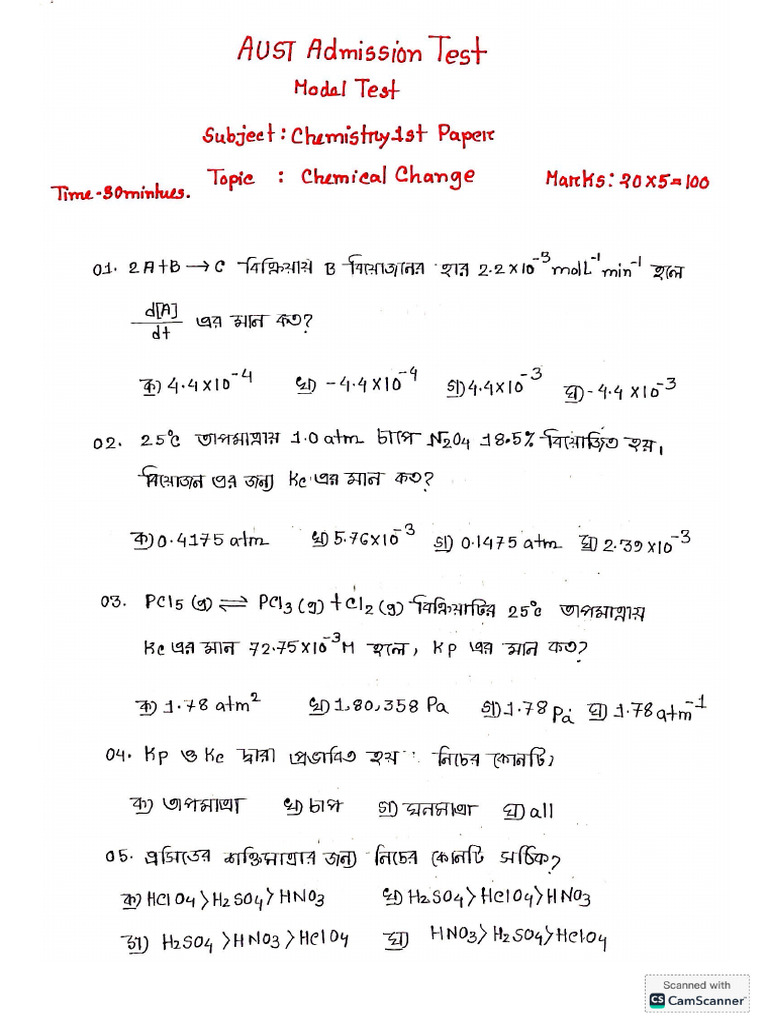 AUST Admission Test
Modal Test
Subject: Chemistry 1st Paper
Topic : Chemical Change
Marks: 20×5=100
Time-30mintues.
01. 2A+B → C বিক্রিয়ায় B বিয়োজনের হার 2.2×10⁻³ molL⁻¹ min⁻¹ হলে
d[A]/dt এর মান কত?
ক) 4.4×10⁻⁴ খ) -4.4×10⁻⁴ গ) 4.4×10⁻³ ঘ) -4.4×10⁻³
02. 25°C তাপমাত্রায় 1.0 atm চাপে N₂O₄ 18.5% বিয়োজিত হয়,
বিয়োজন এর জন্য Kc এর মান কত?
ক) 0.4175 atm খ) 5.76×10⁻³ গ) 0.1475 atm ঘ) 2.39×10⁻³
03. PCl₅(g) ⇌ PCl₃(g) + Cl₂(g) বিক্রিয়াটির 25°C তাপমাত্রায়
Kc এর মান 72.75×10⁻³M হলে, Kp এর মান কত?
ক) 1.78 atm² খ) 1,80,358 Pa গ) 1.78 Pa ঘ) 1.78 atm⁻¹
04. Kp ও Kc দ্বারা প্রভাবিত হয় : নিচের কোনটি,
ক) তাপমাত্রা খ) চাপ গ) ঘনমাত্রা ঘ) all
05. এসিডের শক্তিমাত্রার জন্য নিচের কোনটি সঠিক?
ক) HClO₄>H₂SO₄>HNO₃ খ) H₂SO₄>HClO₄>HNO₃
গ) H₂SO₄>HNO₃>HClO₄ ঘ) HNO₃>H₂SO₄>HClO₄
Scanned with
CS CamScanner